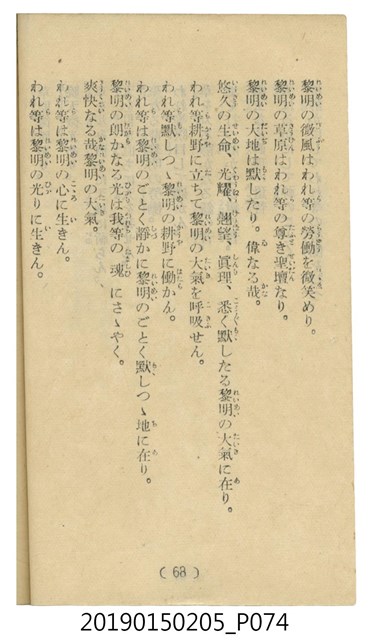 黎明の微風はわれ等の勞働を微笑めり。
黎明の草原はわれ等の尊き聖壇なり。
黎明の大地は默したり。偉なる哉。
悠久の生命、光耀、翹望、眞理、悉く默したる黎明の大氣に在り。
われ等耕野に立ちて黎明の大氣を呼吸せん。
われ等默しつゝ黎明の耕野に働かん。
われ等は黎明のごとく靜かに黎明のごとく默しつゝ地に在り。
黎明の朗かなる光は我等の魂にさゝやく。
爽快なる哉黎明の大氣。
われ等は黎明の心に生きん。
われ等は黎明の光りに生きん。
(68)
20190150205_P074